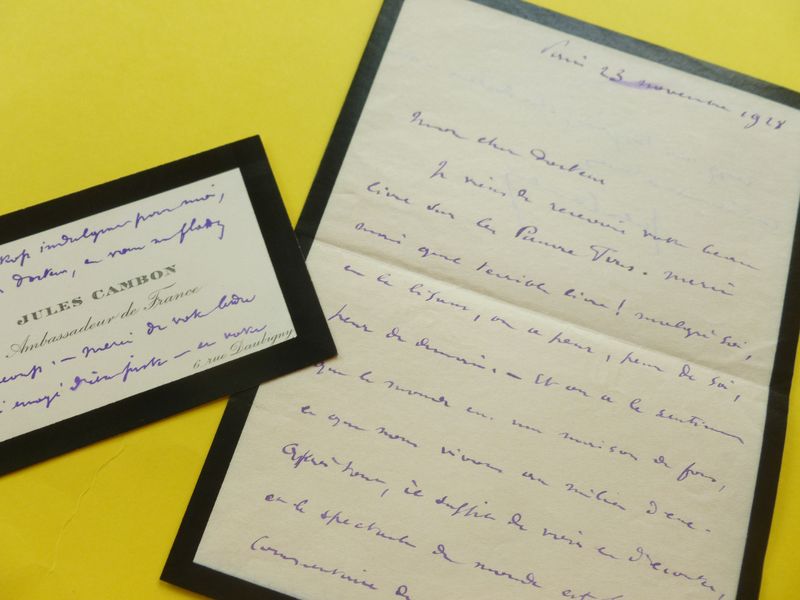 trop indulgent pour moi,
docteur, et vous me flattez
JULES CAMBON
Ambassadeur de France
6 rue Daubigny
merci de votre lettre
Paris 23 novembre 1928
Mon cher Docteur
Je viens de recevoir votre beau
livre sur les Pauvres Types. merci
mais quel terrible livre ! malgré soi,
en le lisant, on a peur, peur de soi,
peur de demain. – Et on a le sentiment
que le monde est une maison de fous,
et que nous vivons au milieu d'eux.
Après tout, il suffit de voir et d'écouter,
et le spectacle du monde est
Commentaire de